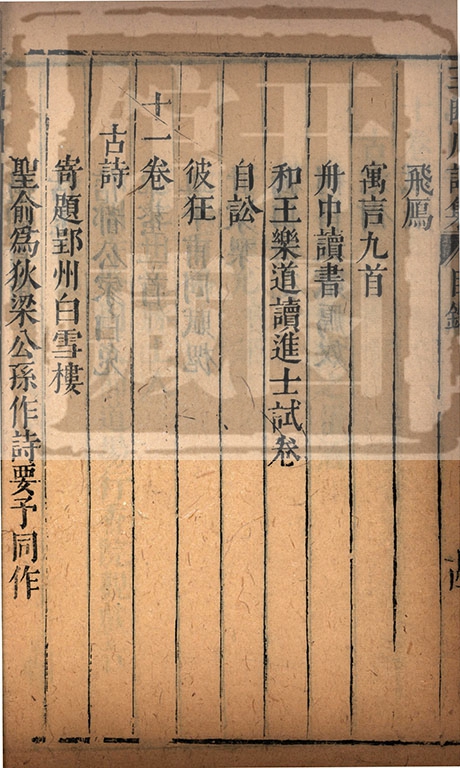 飛鴈
寓言九首
舟中讀書
和王樂道讀進士試卷
自訟
彼狂
十一卷
古詩
寄題郢州白雪樓
聖俞為狄梁公孫作詩要予同作